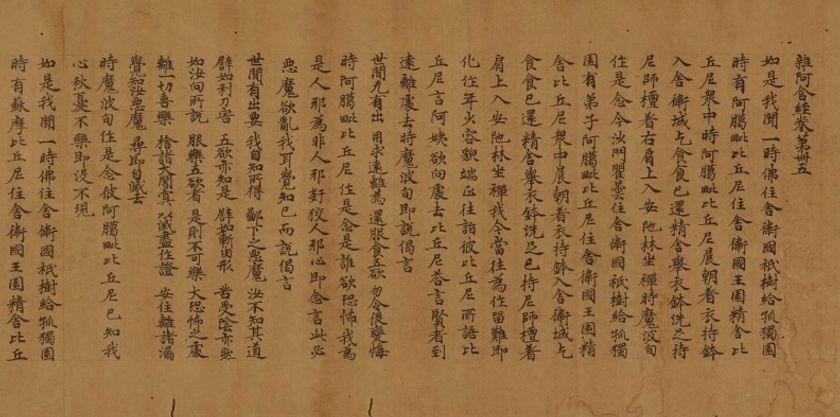 雜阿含經卷第卌五
如是我聞一時佛住舍衛國祇樹給孤獨園
時有阿臈毗比丘尼住舍衛國王園精舍比
丘尼衆中時阿臈毗比丘尼晨朝着衣持鉢
入舍衛城乞食食已還精舍舉衣鉢洗足持
尼師檀着右肩上入安陁林坐禪時魔波旬
作是念今沙門瞿曇住舍衛國祇樹給孤獨
園有弟子阿臈毗比丘尼住舍衛國王園精
舍比丘尼衆中晨朝着衣持鉢入舍衛城乞
食食已還精舍舉衣鉢洗足已持尼師檀着
肩上入安陁林坐禪我今當往為作留難即
化作年少容貌端正往詣彼比丘尼所語比
丘尼言阿姨欲向處去比丘尼荅言賢者到
遠離處去時魔波旬即說偈言
世間无有出 用求遠離為 還服食五欲 勿令後變悔
時阿臈毗比丘尼作是念是誰欲恐怖我為
是人耶為非人耶奸狡人耶心即念言此必
惡魔欲亂我耳覺知已而說偈言
世間有出要 我自知所得 鄙下之惡魔 汝不知其道
譬如利刀害 五欲亦如是 譬如斬肉形 苦受陰亦然
如汝向所說 服樂五欲者 是則不可樂 大恐怖之處
離一切喜樂 捨諸大闇冥 以滅盡作證 安住離諸漏
覺知汝惡魔 尋即自滅去
時魔波旬作是念彼阿臈毗比丘尼已知我
心愁憂不樂即沒不現
如是我聞一時佛住舍衛國祇樹給孤獨園
時有蘇摩比丘尼住舍衛國王園精舍比丘